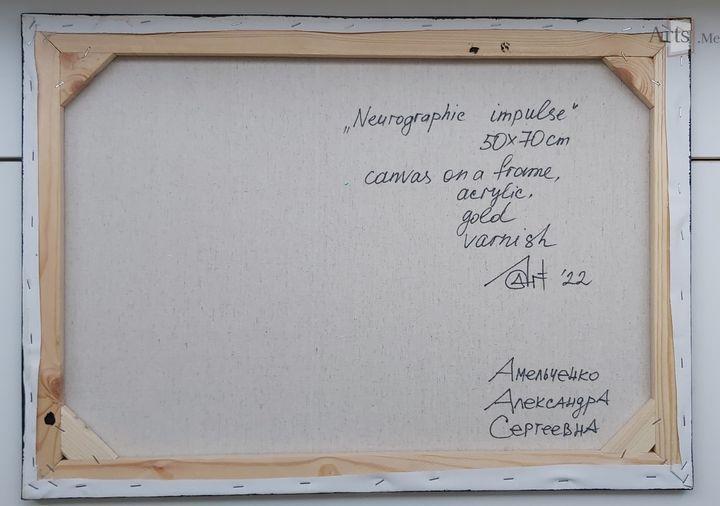 Arts.Me
„Neurographic impulse"
50x70cm
canvas on a frame,
acrylic,
gold
varnish
'22
Амельченко
Александра
Сергеевна